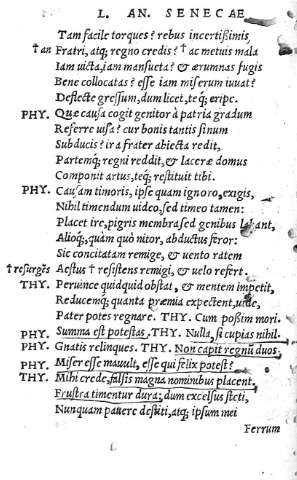 L. AN. SENECAE
Tam facile torques? rebus incertißimis,
†an Fratri, atq; regno credis? † ac metuis mala
Iam uicta, iam mansueta? & ærumnas fugis
Bene collocatas? esse iam miserum iuuat?
Deflecte gressum, dum licet, teq; eripe.
PHY. Quæ causa cogit genitor à patria gradum
Referre uisa? cur bonis tantis sinum
Subducis? ira frater abiecta redit,
Partemq; regni reddit, & laceræ domus
Componit artus, teq; restituit tibi.
PHY. Causam timoris, ipse quam ignoro, exigis,
Nihil timendum uideo, sed timeo tamen:
Placet ire, pigris membra sed genibus labant,
Alioq;, quàm quò nitor, abductus feror:
Sic concitatam remige, & uento ratem
†resurgẽs Aestus † resistens remigi, & uelo refert.
THY. Peruince quidquid obstat, & mentem impetit,
Reducemq; quanta præmia expectent, uide,
Pater potes regnare. THY. Cum poßim mori.
PHY. Summa est potestas. THY. Nulla, si cupias nihil.
PHY. Gnatis relinques. THY. Non capit regnũ duos.
PHY. Miser esse mauult, esse qui felix potest?
THY. Mihi crede, falsis magna nominibus placent,
Frustra timentur dura; dum excelsus steti,
Nunquam pauere destiti, atq; ipsum mei
Ferrum